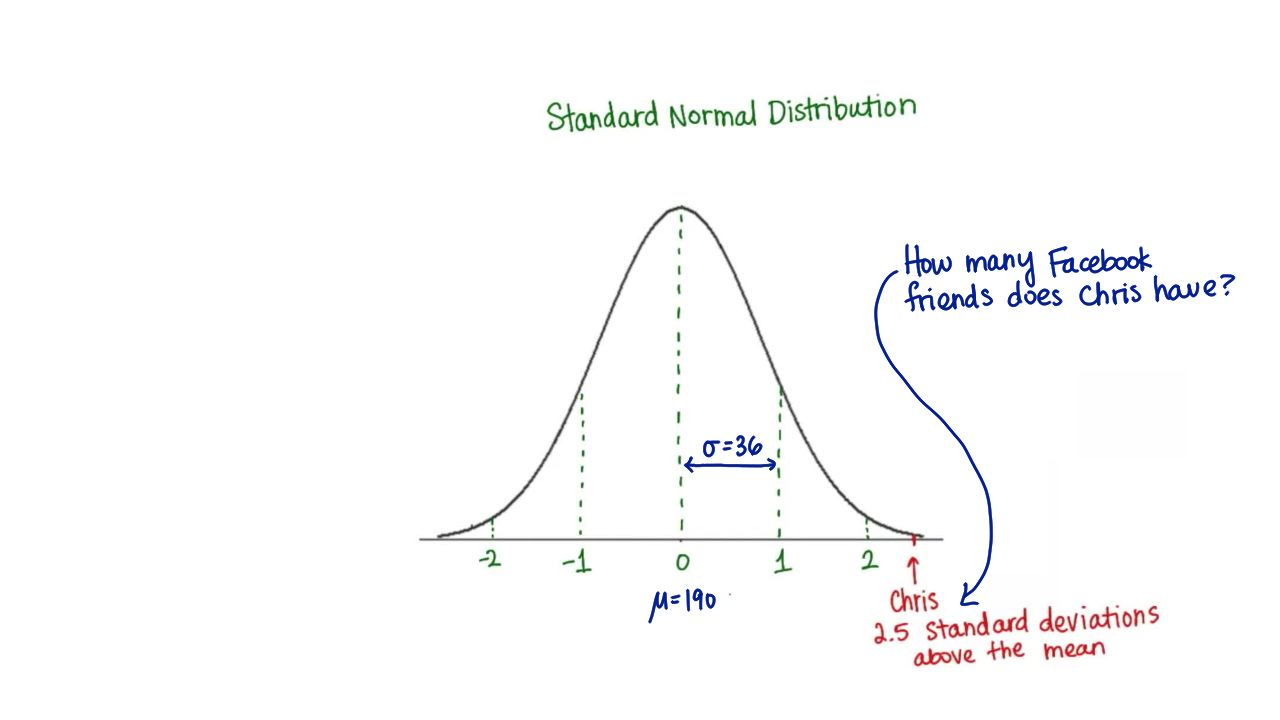 Standard Normal Distribution
How many Facebook
friends does Chris have?
σ=36
-2 -1 0 1 2
μ=190
Chris
2.5 standard deviations
above the mean